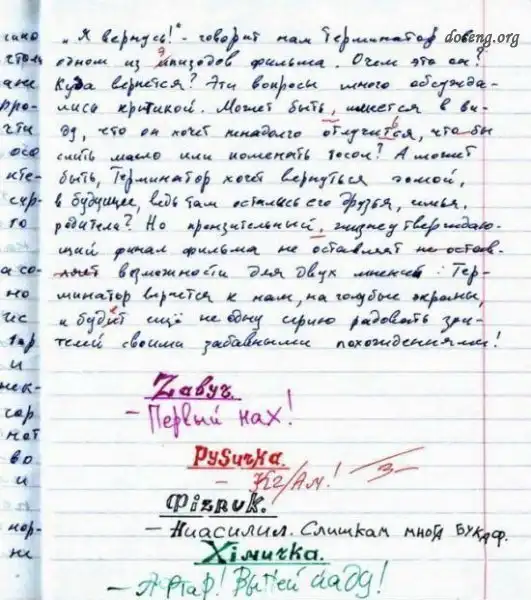 „Я вернусь!" - говорит нам Терминатор в
doseng.org
одном из ипизодов фильма. О чем это он?
Куда вернется? Эти вопросы много обсужда-
лись критикой. Может быть, имеется в ви-
ду, что он хочет ненадолго отлучится, что бы
слить масло или поменять тосол? А может
быть, Терминатор хочет вернуться домой,
в будущее, ведь там остались его друзья, семья,
родители? Но пронзительный, жизнеутверждаю-
щий финал фильма не оставляет не остав-
ляет возможности для двух мнений: Тер-
минатор вернется к нам, на голубые экраны,
и будит ещё не одну серию радовать зри-
телей своими забавными похождениями!
Zавуч.
- Первый нах!
РуSичка.
- КГ/Ам! 3-
Фiзрuk.
- Ниасилил. Слишкам многа БУКАФ.
Хiмичка.
- Афтар! Выпей йаду!